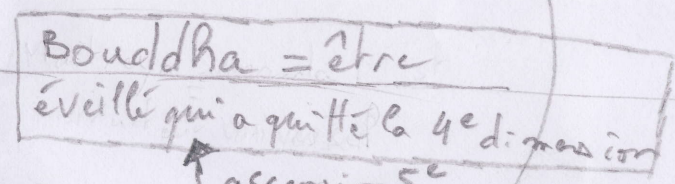 Bouddha = être
éveillé qui a quitté la 4e dimension
ascension 5e